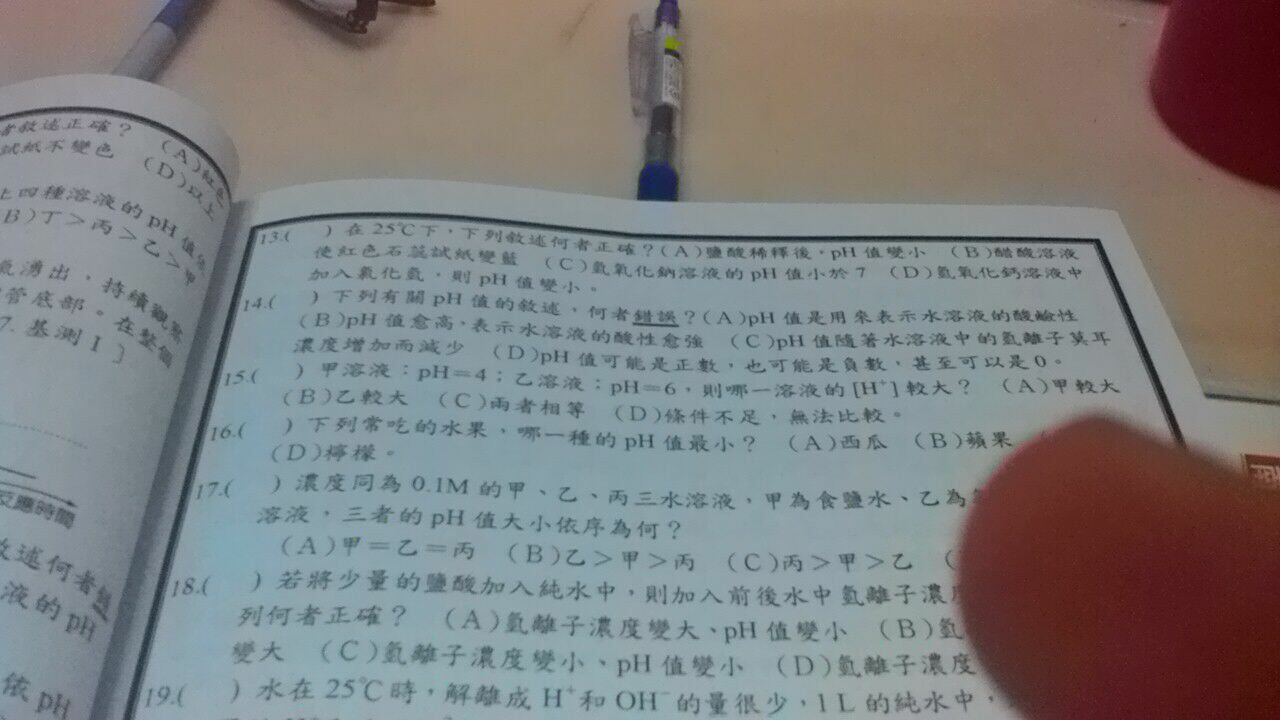 者敘述正確？ (A)紅色
試紙不變色 (D)以上
上四種溶液的 pH 值依
(B)丁＞丙＞乙＞甲
氣湧出，持續觀察
管底部。在整個
7. 基測 I 〕
反應時間
敘述何者錯
液的 pH
依 pH
13.( ) 在 25℃下，下列敘述何者正確？(A)鹽酸稀釋後，pH 值變小 (B)醋酸溶液
使紅色石蕊試紙變藍 (C)氫氧化鈉溶液的 pH 值小於 7 (D)氫氧化鈣溶液中
加入氯化氫，則 pH 值變小。
14.( ) 下列有關 pH 值的敘述，何者錯誤？(A)pH 值是用來表示水溶液的酸鹼性
(B)pH 值愈高，表示水溶液的酸性愈強 (C)pH 值隨著水溶液中的氫離子莫耳
濃度增加而減少 (D)pH 值可能是正數，也可能是負數，甚至可以是 0。
15.( ) 甲溶液：pH＝4；乙溶液：pH＝6，則哪一溶液的 [H⁺] 較大？ (A)甲較大
(B)乙較大 (C)兩者相等 (D)條件不足，無法比較。
16.( ) 下列常吃的水果，哪一種的 pH 值最小？ (A)西瓜 (B)蘋果
(D)檸檬。
17.( ) 濃度同為 0.1M 的甲、乙、丙三水溶液，甲為食鹽水、乙為
溶液，三者的 pH 值大小依序為何？
(A)甲＝乙＝丙 (B)乙＞甲＞丙 (C)丙＞甲＞乙 (
18.( ) 若將少量的鹽酸加入純水中，則加入前後水中氫離子濃
列何者正確？ (A)氫離子濃度變大、pH 值變小 (B)氫
變大 (C)氫離子濃度變小、pH 值變小 (D)氫離子濃度
19.( ) 水在 25℃時，解離成 H⁺和 OH⁻的量很少，1 L 的純水中，